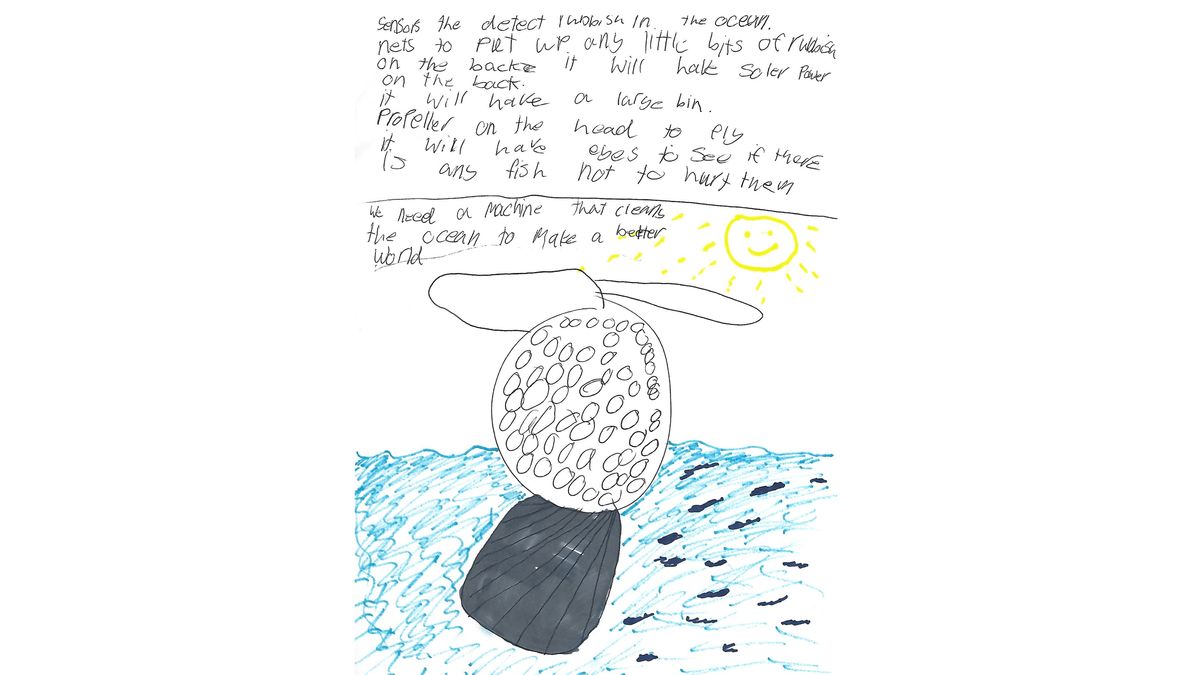 sensors the detect rwobish in the ocean.
nets to Pict up any little bits of rubbish
on the backe it will hake soler Power
on the back.
it will hake a large bin.
Propeller on the head to fly
it will have eyes to see if there
is any fish not to hurt them
we need a machine that cleans
the ocean to make a better
world